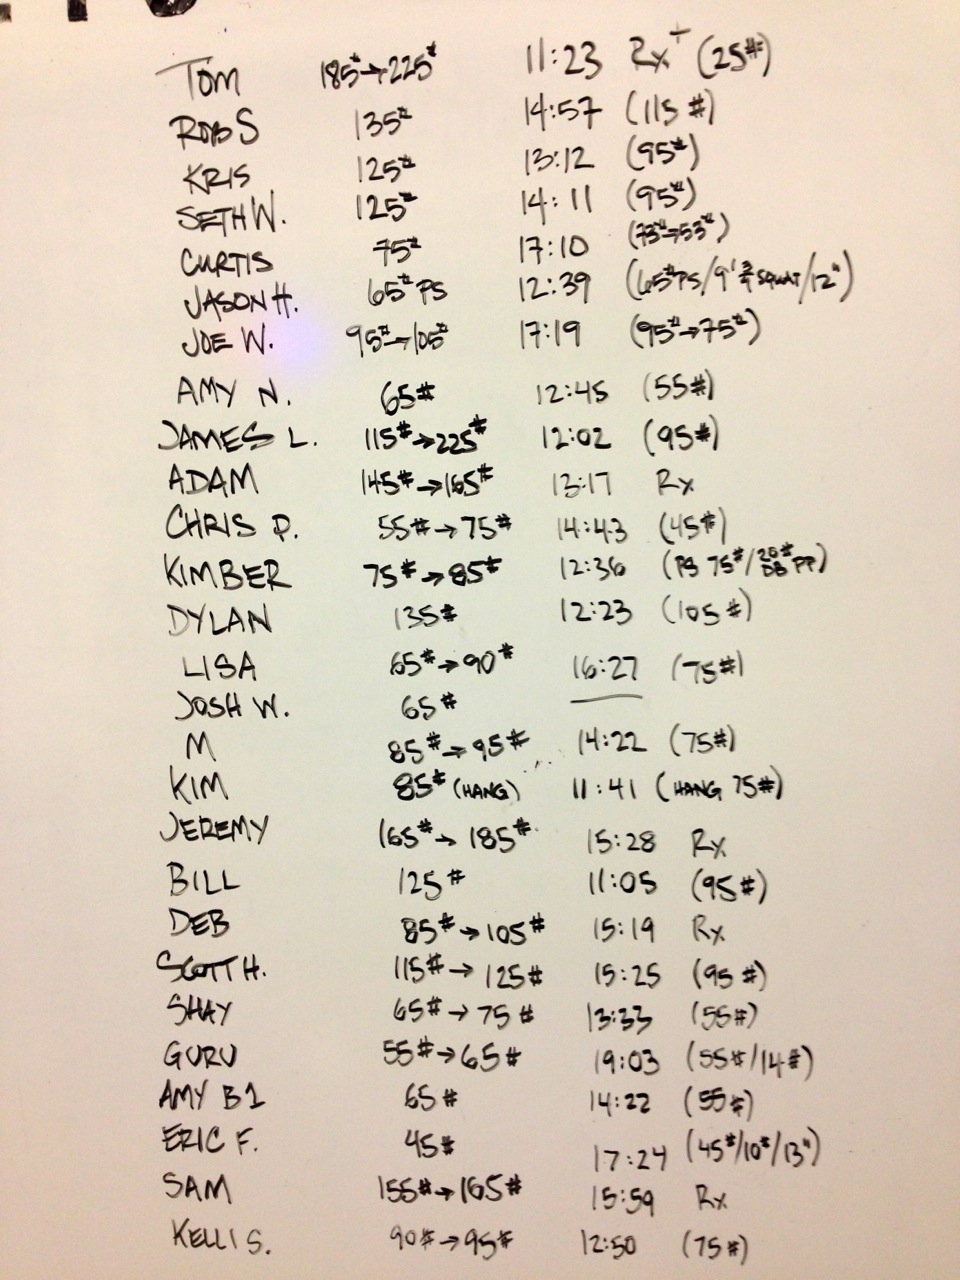 TOM 185#→225# 11:23 Rx+ (25#)
ROB S 135# 14:57 (115 #)
KRIS 125# 13:12 (95#)
SETH W. 125# 14:11 (95#)
CURTIS 75# 17:10 (73#→53#)
JASON H. 65# PS 12:39 (65#PS/9' 3/4 SQUAT/12")
JOE W. 95#→105# 17:19 (95#→75#)
AMY N. 65# 12:45 (55#)
JAMES L. 115#→225# 12:02 (95#)
ADAM 145#→165# 13:17 Rx
CHRIS P. 55#→75# 14:43 (45#)
KIMBER 75#→85# 12:36 (PS 75#/20# DB PP)
DYLAN 135# 12:23 (105#)
LISA 65#→90# 16:27 (75#)
JOSH W. 65#
M 85#→95# 14:22 (75#)
KIM 85# (HANG) 11:41 (HANG 75#)
JEREMY 165#→185# 15:28 Rx
BILL 125# 11:05 (95#)
DEB 85#→105# 15:19 Rx
SCOTT H. 115#→125# 15:25 (95#)
SHAY 65#→75# 13:33 (55#)
GURU 55#→65# 19:03 (55#/14#)
AMY B1 65# 14:22 (55#)
ERIC F. 45# 17:24 (45#/10#/13")
SAM 155#→165# 15:59 Rx
KELLI S. 90#→95# 12:50 (75#)